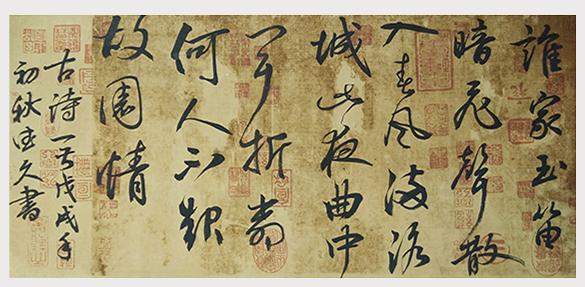 誰家玉笛
暗飛聲散
入春风滿洛
城此夜曲中
闻折柳
何人不起
故園情
古诗一首戊戌年
初秋久書